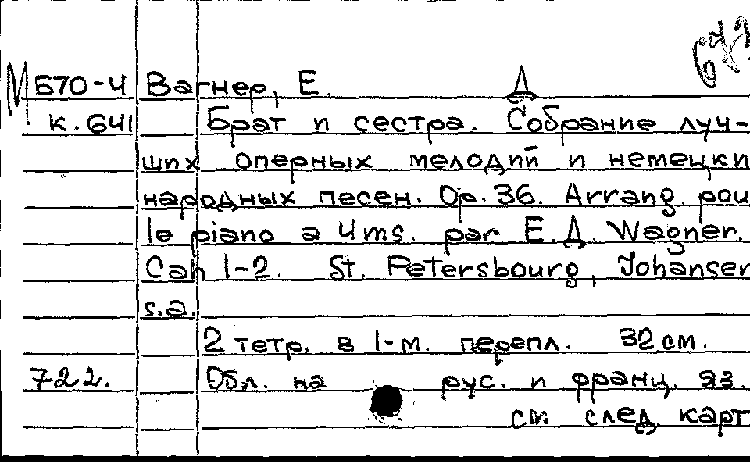 М 570-4 Вагнер, Е. Д
к. 641 Брат и сестра. Собрание луч-
ших оперных мелодий и немецки
народных песен. Op. 36. Arrang. pou
le piano a 4 ms. par E. Д. Wagner.
Cah 1-2. St. Petersbourg, Johansen
s.a.
2 тетр. в 1-м. перепл. 32 см.
722. Обл. на рус. и франц. яз.
см след карт